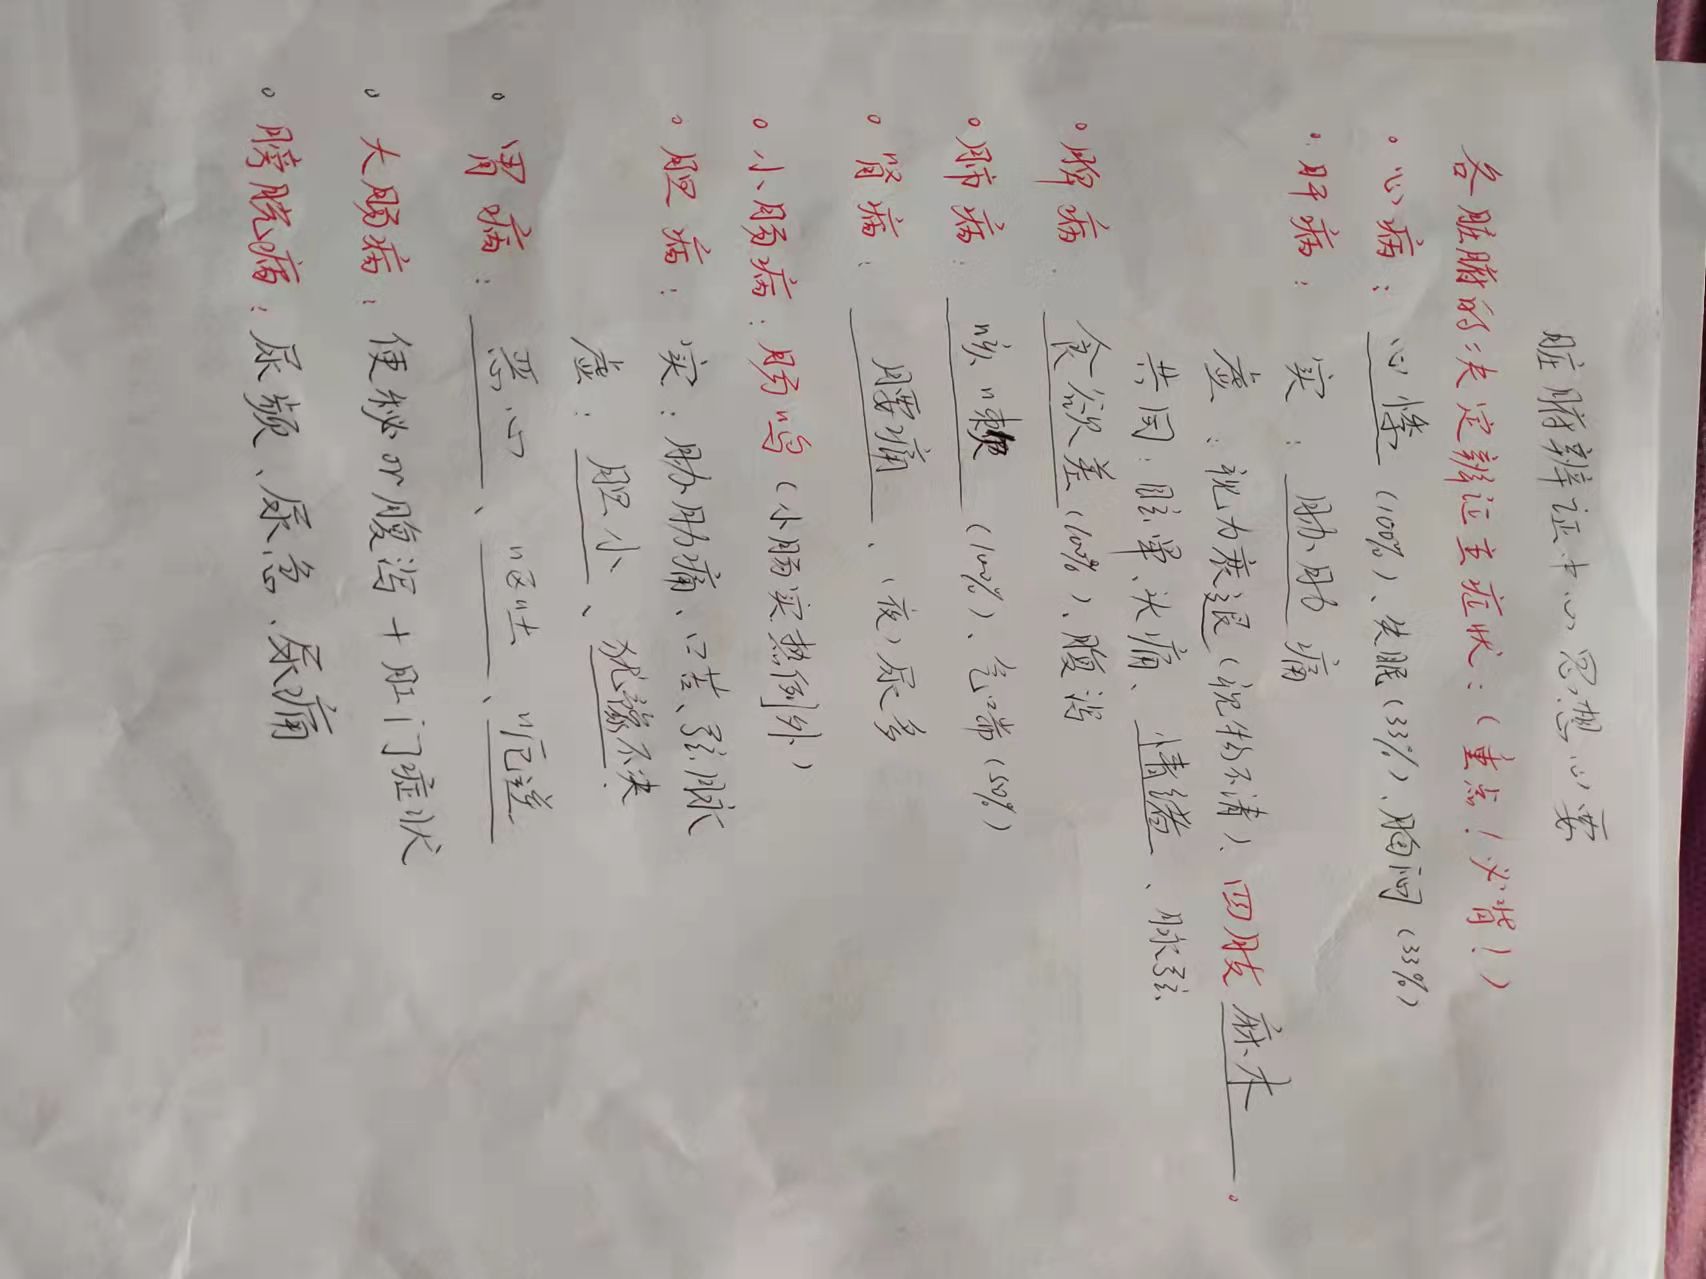 脏腑辩证中心思想心要
各脏腑的决定辨证主症状：（重点！必背！）
。心病：心悸（100%）、失眠（33%）、胸闷（33%）
。肝病：实：胁肋痛
虚：视力衰退（视物不清）、四肢麻木。
共同：眩晕、头痛、情绪、脉弦
。脾病 食欲差（100%）、腹泻
。肺病：咳嗽（100%）、气喘（50%）
。肾病：腰痛、（夜）尿多
。小肠病：肠鸣（小肠实热例外）
。胆病：实：胁肋痛、口苦、弦脉
虚：胆小、犹豫不决
。胃病：恶心、呕吐、呃逆
。大肠病：便秘or腹泻+肛门症状
。膀胱病：尿频、尿急、尿痛